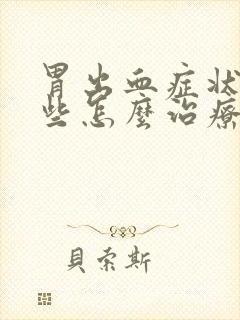 胃出血症状
些怎麼治療
貝索斯